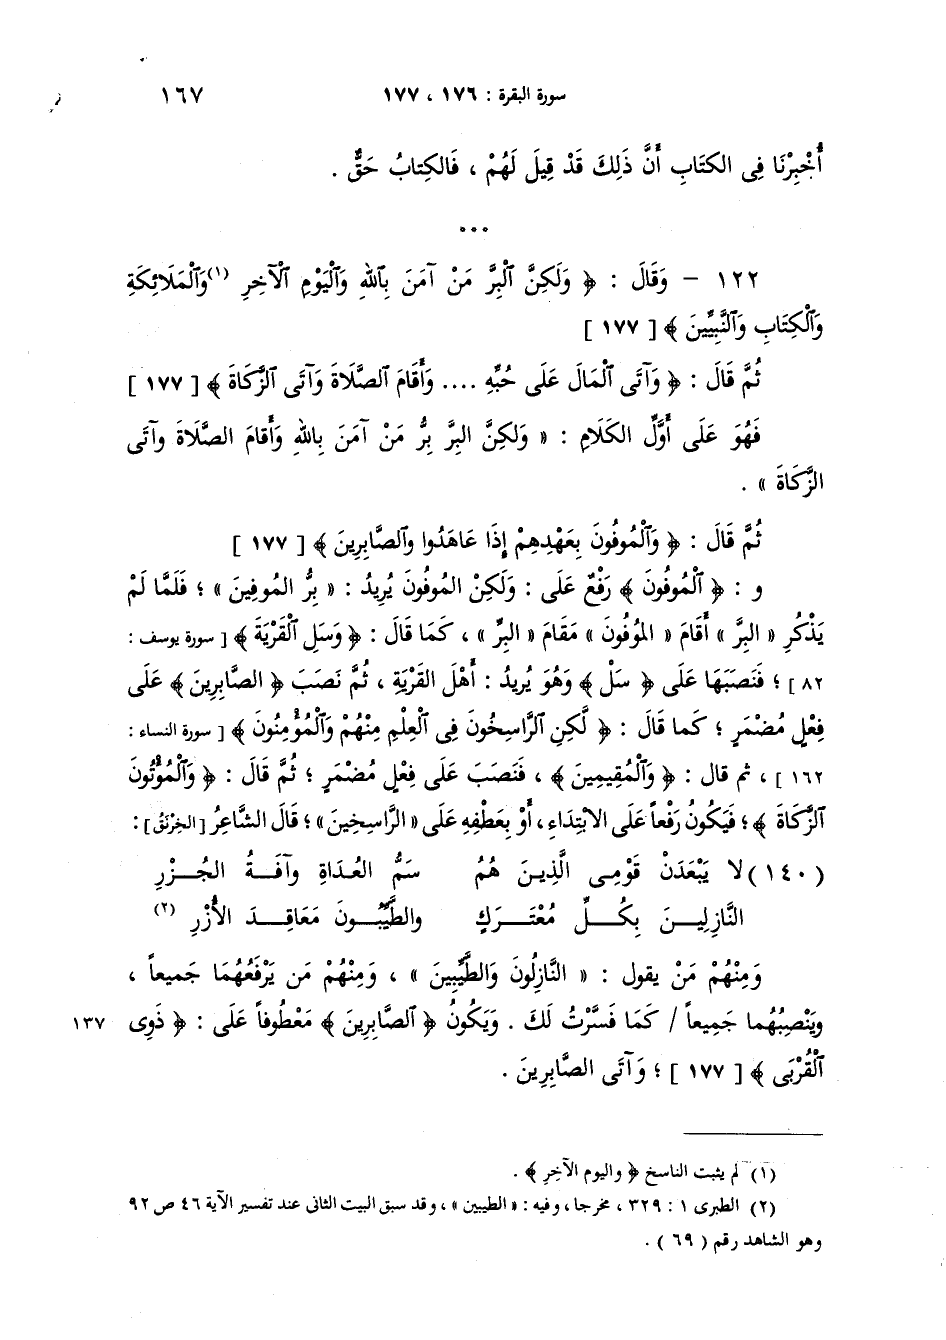 سورة البقرة : ١٧٦ ، ١٧٧ ١٦٧
أُخْبِرْنَا فِى الكتَابِ أَنَّ ذَلِكَ قَدْ قِيلَ لَهُمْ ، فَالكِتابُ حَقٌّ .
١٢٢ – وَقَالَ : ﴿ وَلَكِنَّ ٱلْبِرَّ مَنْ آمَنَ بِٱللهِ وَٱلْيَوْمِ ٱلْآخِرِ (١) وَٱلْمَلَائِكَةِ
وَٱلْكِتَابِ وَٱلنَّبِيِّينَ ﴾ [ ١٧٧ ]
ثُمَّ قَالَ : ﴿ وَآتَى ٱلْمَالَ عَلَى حُبِّهِ .... وَأَقَامَ ٱلصَّلَاةَ وَآتَى ٱلزَّكَاةَ ﴾ [ ١٧٧ ]
فَهُوَ عَلَى أَوَّلِ الكَلَامِ : « وَلكِنَّ البِرَّ بِرُّ مَنْ آمَنَ بِاللهِ وَأَقامَ الصَّلَاةَ وآتَى
الزَّكَاةَ » .
ثُمَّ قَالَ : ﴿ وَٱلْمُوفُونَ بِعَهْدِهِمْ إِذَا عَاهَدُوا وٱلصَّابِرِينَ ﴾ [ ١٧٧ ]
و : ﴿ ٱلْمُوفُونَ ﴾ رَفْعٌ عَلَى : وَلَكِنْ المُوفُونَ يُرِيدُ : « بِرُّ المُوفِينَ » ؛ فَلَمَّا لَمْ
يَذْكُرِ « البِرَّ » أَقَامَ « المُوفُونَ » مَقَامَ « البِرِّ » ، كَمَا قَالَ : ﴿ وَسَلِ ٱلْقَرْيَةَ ﴾ [ سورة يوسف :
٨٢ ] ؛ فَنَصَبَهَا عَلَى ﴿ سَلْ ﴾ وَهُوَ يُرِيدُ : أَهْلَ القَرْيَةِ ، ثُمَّ نَصَبَ ﴿ الصَّابِرِينَ ﴾ عَلَى
فِعْلٍ مُضْمَرٍ ؛ كَما قَالَ : ﴿ لَكِنِ ٱلرَّاسِخُونَ فِى ٱلْعِلْمِ مِنْهُمْ وَٱلْمُؤْمِنُونَ ﴾ [ سورة النساء :
١٦٢ ] ، ثم قال : ﴿ وَٱلْمُقِيمِينَ ﴾ ، فَنَصَبَ عَلَى فِعْلٍ مُضْمَرٍ ؛ ثُمَّ قَالَ : ﴿ وَٱلْمُؤْتُونَ
ٱلزَّكَاةَ ﴾ ؛ فَيَكُونُ رَفْعاً عَلَى الابْتِدَاءِ ، أَوْ بِعَطْفِهِ عَلَى « الرَّاسِخِينَ » ؛ قَالَ الشاعِرُ [ الخِرْنَقُ ] :
(١٤٠) لا يَبْعَدَنْ قَوْمِى الَّذِينَ هُمُ سَمُّ العُدَاةِ وآفَةُ الجُزْرِ
النَّازِلِينَ بِكُلِّ مُعْتَرَكٍ والطَّيِّبُونَ مَعَاقِدَ الأُزْرِ (٢)
وَمِنْهُمْ مَنْ يقول : « النَّازِلُونَ وَالطَّيِّبِينَ » ، وَمِنْهُمْ مَن يَرْفَعُهُمَا جَميعاً ،
ويَنْصِبُهُما جَمِيعاً / كَمَا فَسَّرْتُ لَكَ . وَيَكُونُ ﴿ ٱلصَّابِرِينَ ﴾ مَعْطُوفاً عَلَى : ﴿ ذَوِى ١٣٧
ٱلْقُرْبَى ﴾ [ ١٧٧ ] ؛ وَآتَى الصَّابِرِينَ .
(١) لم يثبت الناسخ ﴿ واليوم الآخِرِ ﴾ .
(٢) الطبرى ١ : ٣٢٩ ، مخرجا ، وفيه : « الطيبين » ، وقد سبق البيت الثانى عند تفسير الآية ٤٦ ص ٩٢
وهو الشاهد رقم ( ٦٩ ) .